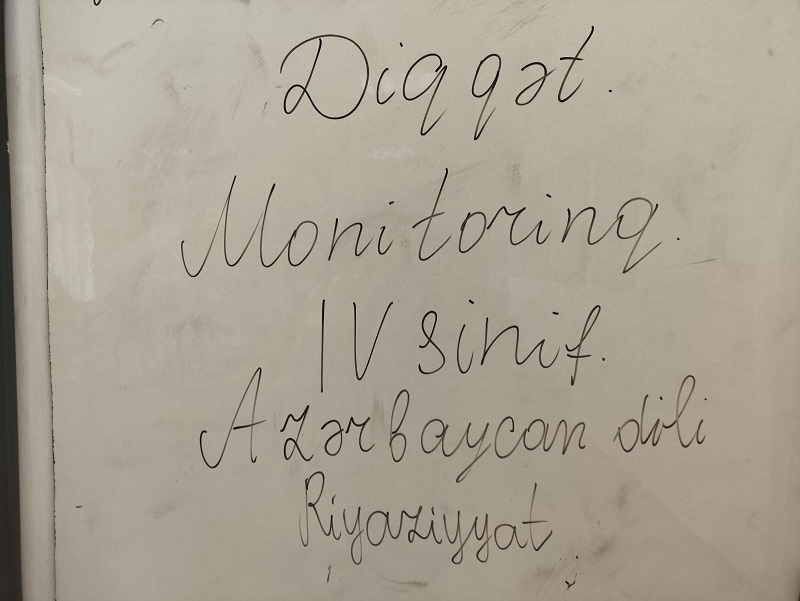 Diqqət.
Monitorinq.
IV sinif.
Azərbaycan dili
Riyaziyyat